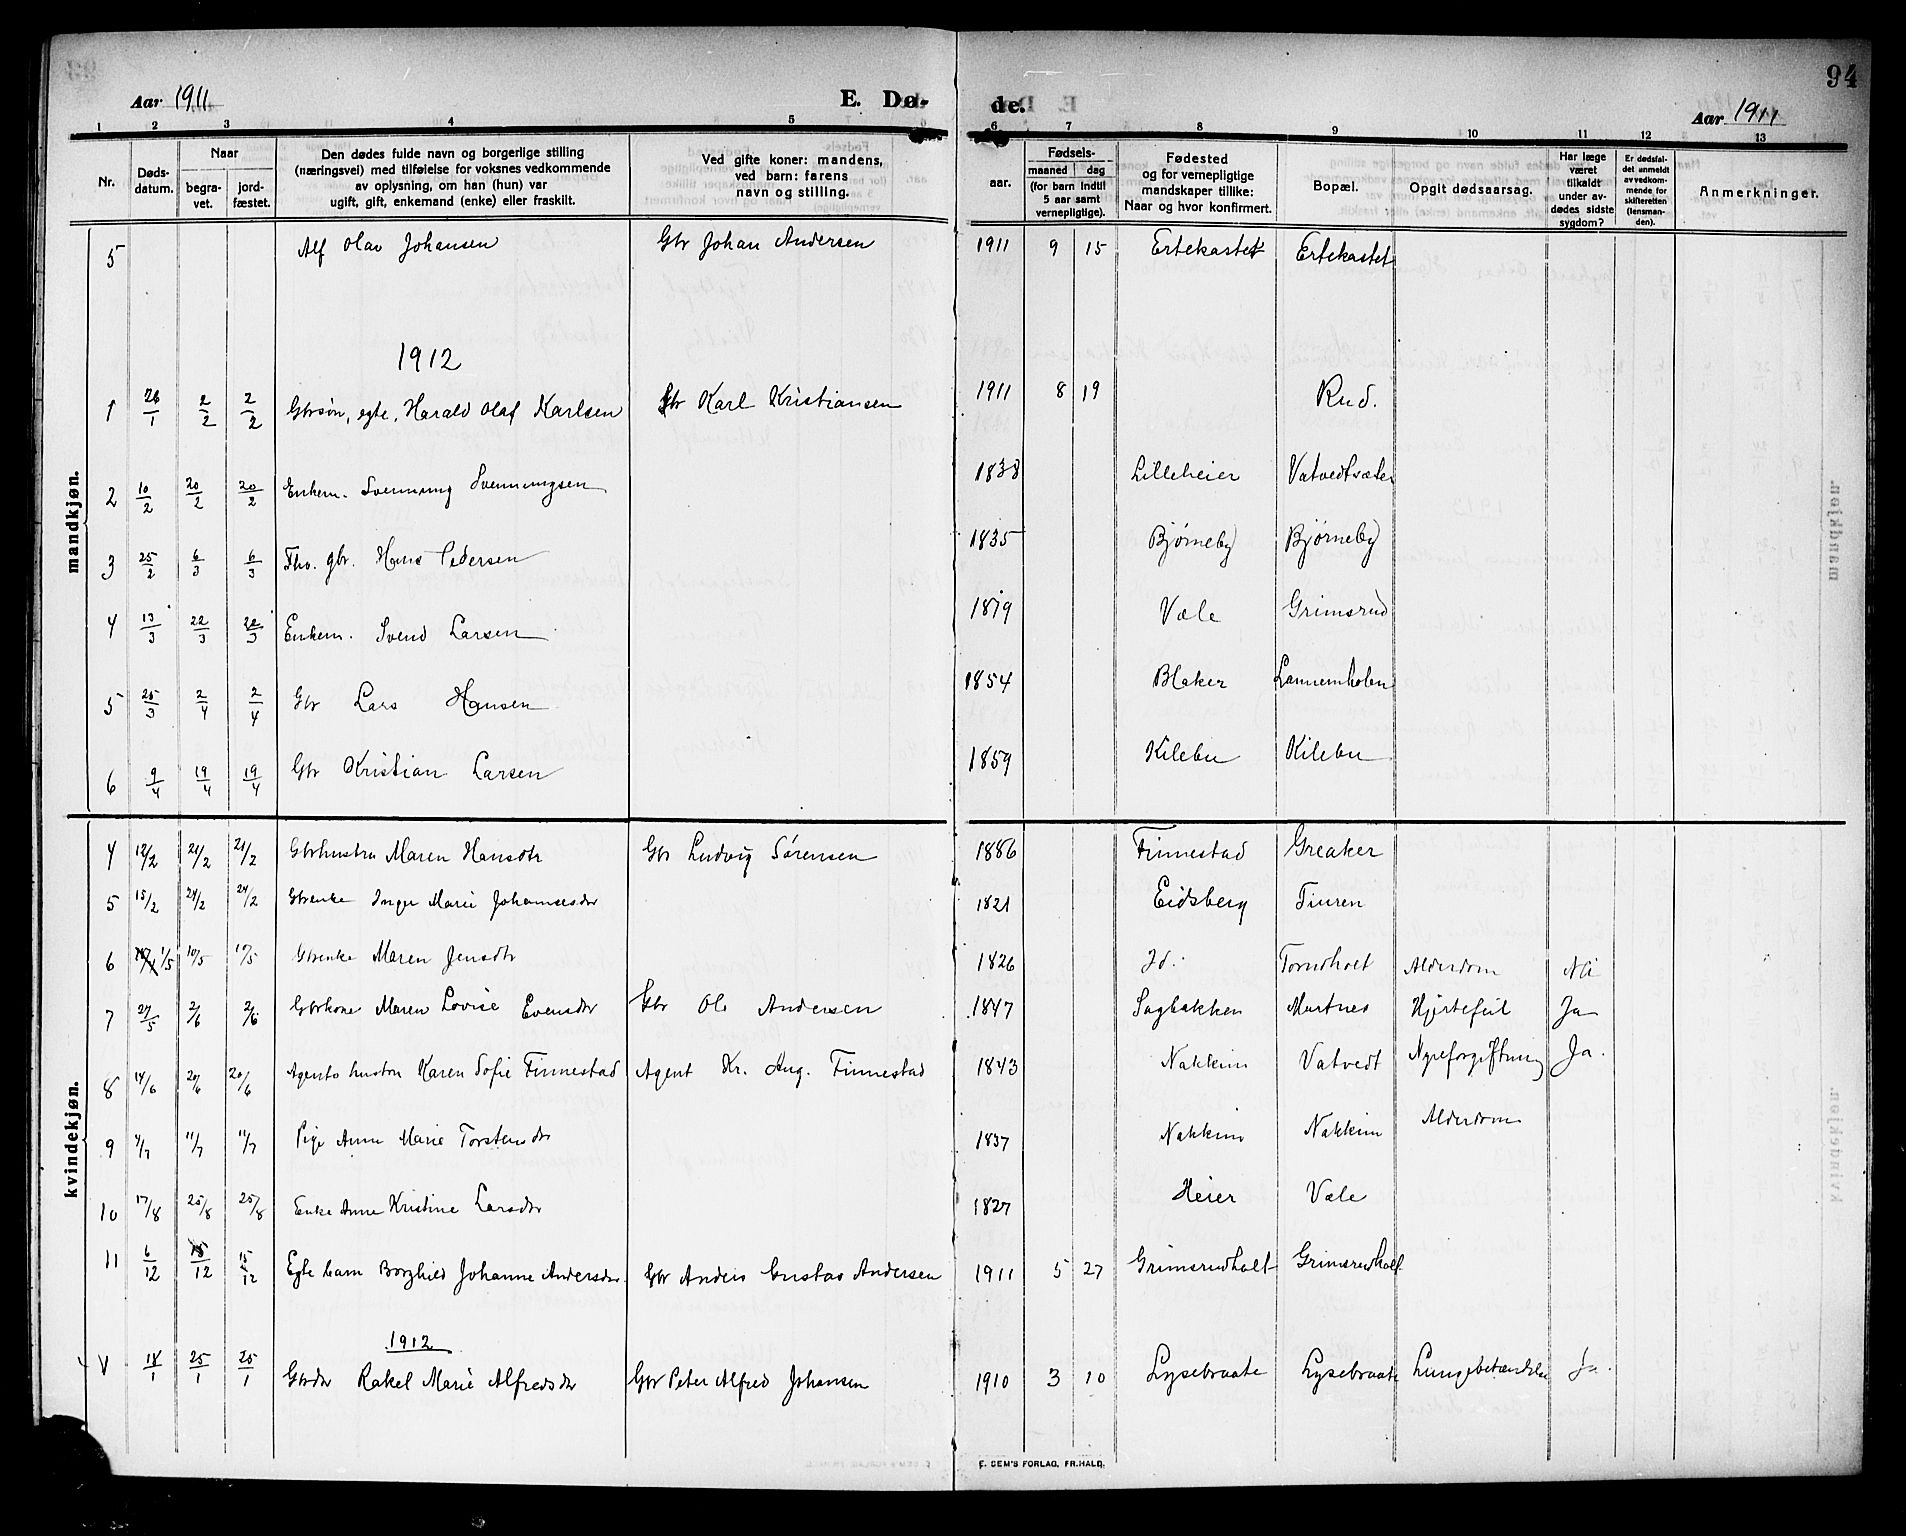 94
Aar 1911 E. Dø- de. Aar 1911
1 2 3 4 5 6 7 8 9 10 11 12 13
Nr. Døds-datum. Naar begra-vet. jord-fæstet. Den dødes fulde navn og borgerlige stilling (næringsvei) med tilføielse for voksnes vedkommende av oplysning, om han (hun) var ugift, gift, enkemand (enke) eller fraskilt. Ved gifte koner: mandens, ved barn: farens navn og stilling. aar. Fødsels- maaned dag (for barn indtil 5 aar samt vernepligtige). Fødested og for vernepligtige mandskaper tillike: Naar og hvor konfirmert. Bopæl. Opgit dødsaarsag. Har læge været tilkaldt under av-dødes sidste sygdom? Er dødsfal-det anmeldt av vedkom-mende for skifteretten (lensman-den). Anmerkninger.
mandkjøn.
5 Alf Olav Johansen Gbr Johan Andersen 1911 9 15 Ertekastet Ertekastet
1912
1 26/1 2/2 2/2 Gbrsøn, egte, Harald Olaf Karlsen Gbr Karl Kristiansen 1911 8 19 Rud.
2 10/2 20/2 20/2 Enkem. Svenning Svenningsen 1838 Lilleheier Vatvedtsæter
3 25/2 6/3 6/3 Fhv. gbr. Hans Pedersen 1835 Bjørneby Bjørneby
4 13/3 22/3 22/3 Enkem. Svend Larsen 1819 Væle Grimsrud
5 25/3 2/4 2/4 Gbr Lars Hansen 1854 Blaker Lannemholen
6 9/4 19/4 19/4 Gbr Kristian Larsen 1859 Kilebu Kilebu
kvindekjøn.
4 12/2 21/2 21/2 Gbrhustru Maren Hansdtr Gbr Ludvig Sørensen 1886 Finnestad Greaker
5 15/2 24/2 24/2 Gbrenke Inger Marie Johannesdtr 1821 Eidsberg Tiuren
6 1/5 10/5 10/5 Gbrenke Maren Jensdtr 1826 Id. Tornholt Alderdom Nei
7 27/5 2/6 2/6 Gbrkone Maren Lovise Evensdtr Gbr Ole Andersen 1847 Sagbakken Martnes Hjertefeil Ja
8 14/6 20/6 20/6 Agents hustru Karen Sofie Finnestad Agent Kr. Aug. Finnestad 1843 Nakkim Vatvedt Nyreforgiftning Ja.
9 4/7 11/7 11/7 Pige Anne Marie Torstensdtr 1837 Nakkim Nakkim Alderdom
10 17/8 25/8 25/8 Enke Anne Kristine Larsdtr 1827 Heier Væle
11 6/12 15/12 15/12 Egte barn Borghild Johanne Andersdtr. Gbr Anders Gustav Andersen 1911 5 27 Grimsrudholt Grimsrudholt
1912
V 18/1 25/1 25/1 Gbrdtr Rakel Marie Alfredsdtr Gbr Peter Alfred Johansen 1910 3 10 Lysebraate Lysebraate Lungebetændelse Ja.
E. SEM'S FORLAG, FR.HALD.